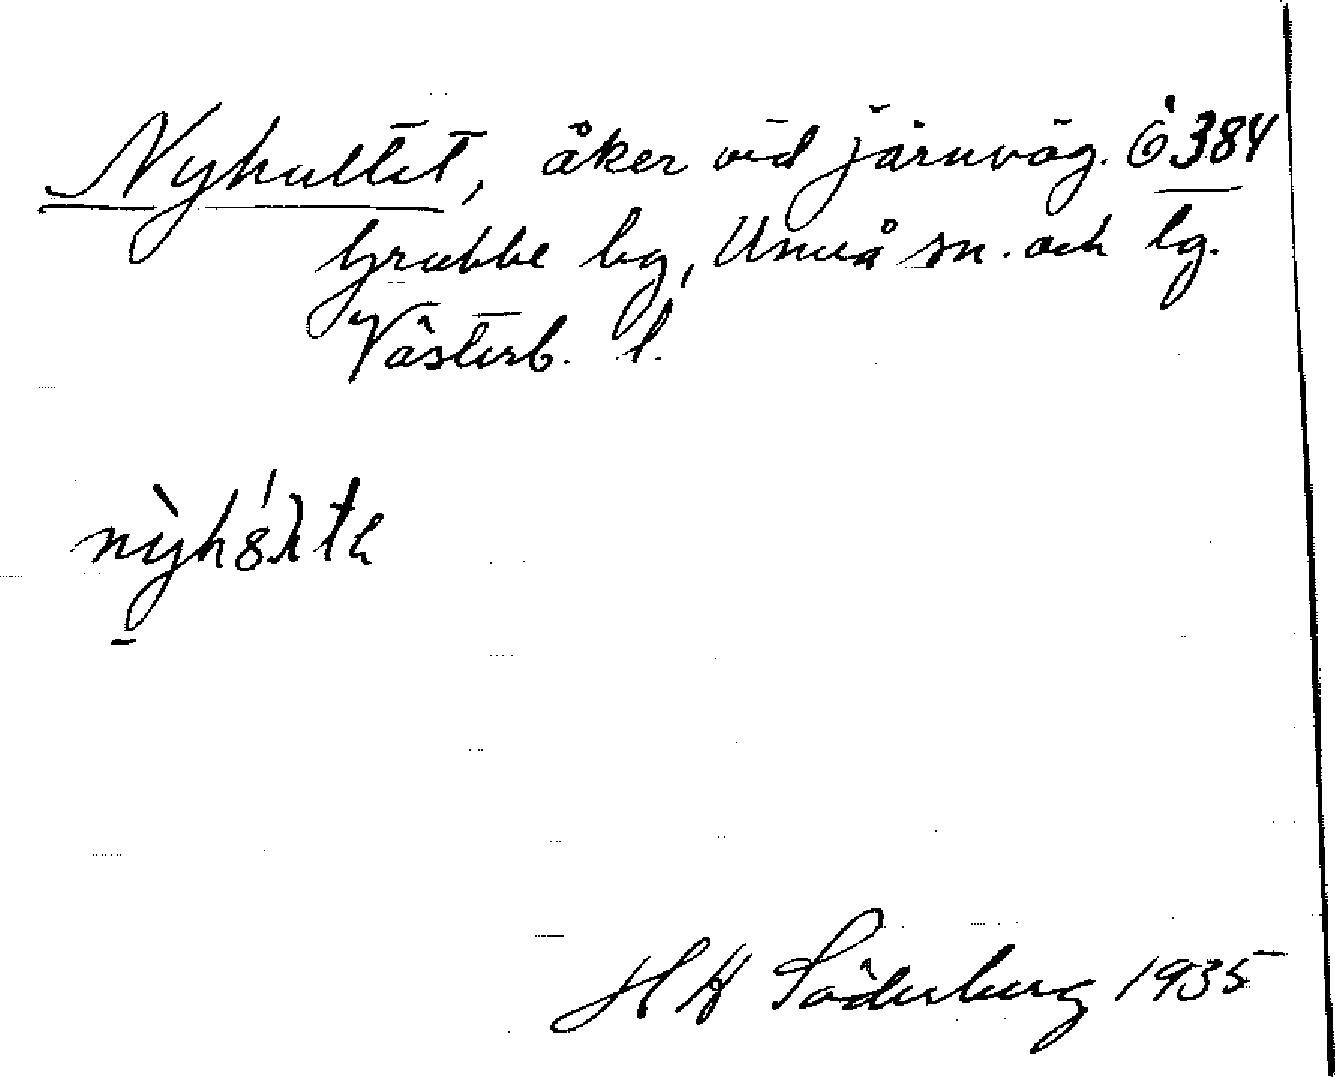 Nyhultet, åker vid järnväg. Ö 384
Grubbe by, Umeå sn. och lg.
Västerb. l.
H W Söderberg 1935